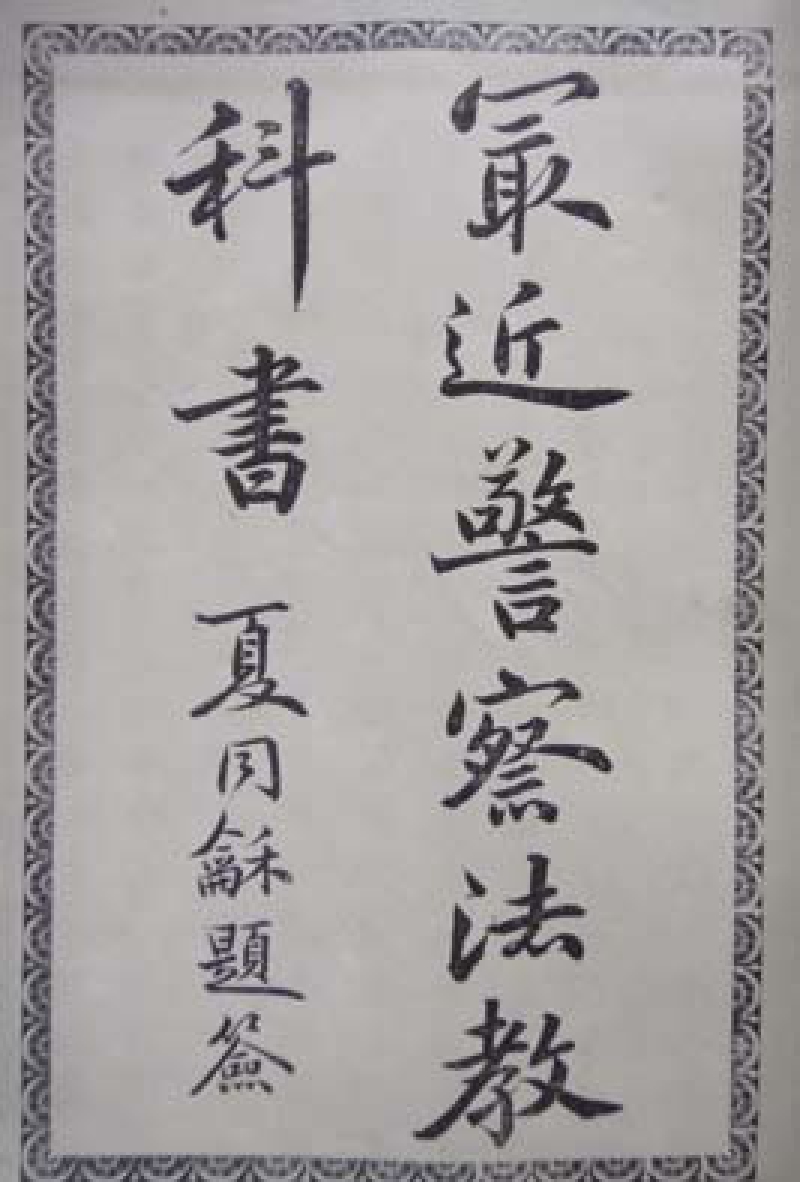 冣近警察法教
科書 夏同龢題簽